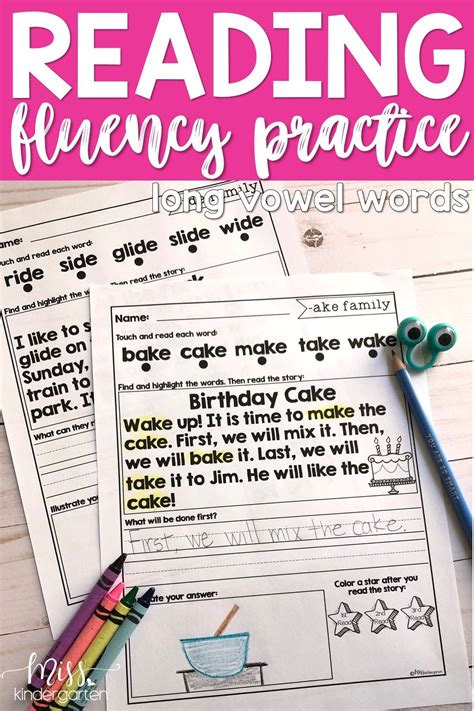 READING
fluency practice
long vowel words
-ide family
Name:
Touch and read each word:
ride side glide slide wide
Find and highlight the words. Then read the story:
I like to s
glide on t
Sunday,
train to
park. It
What can they r
Illustrate you
-ake family
Name:
Touch and read each word:
bake cake make take wake
Find and highlight the words. Then read the story:
Birthday Cake
Wake up! It is time to make the
cake. First, we will mix it. Then,
we will bake it. Last, we will
take it to Jim. He will like the
cake!
What will be done first?
First, we will mix the cake.
rate your answer:
Color a star after you
read the story:
1st Read
2nd Read
3rd Read
YOU ARE SO SMART
miss
kindergarten